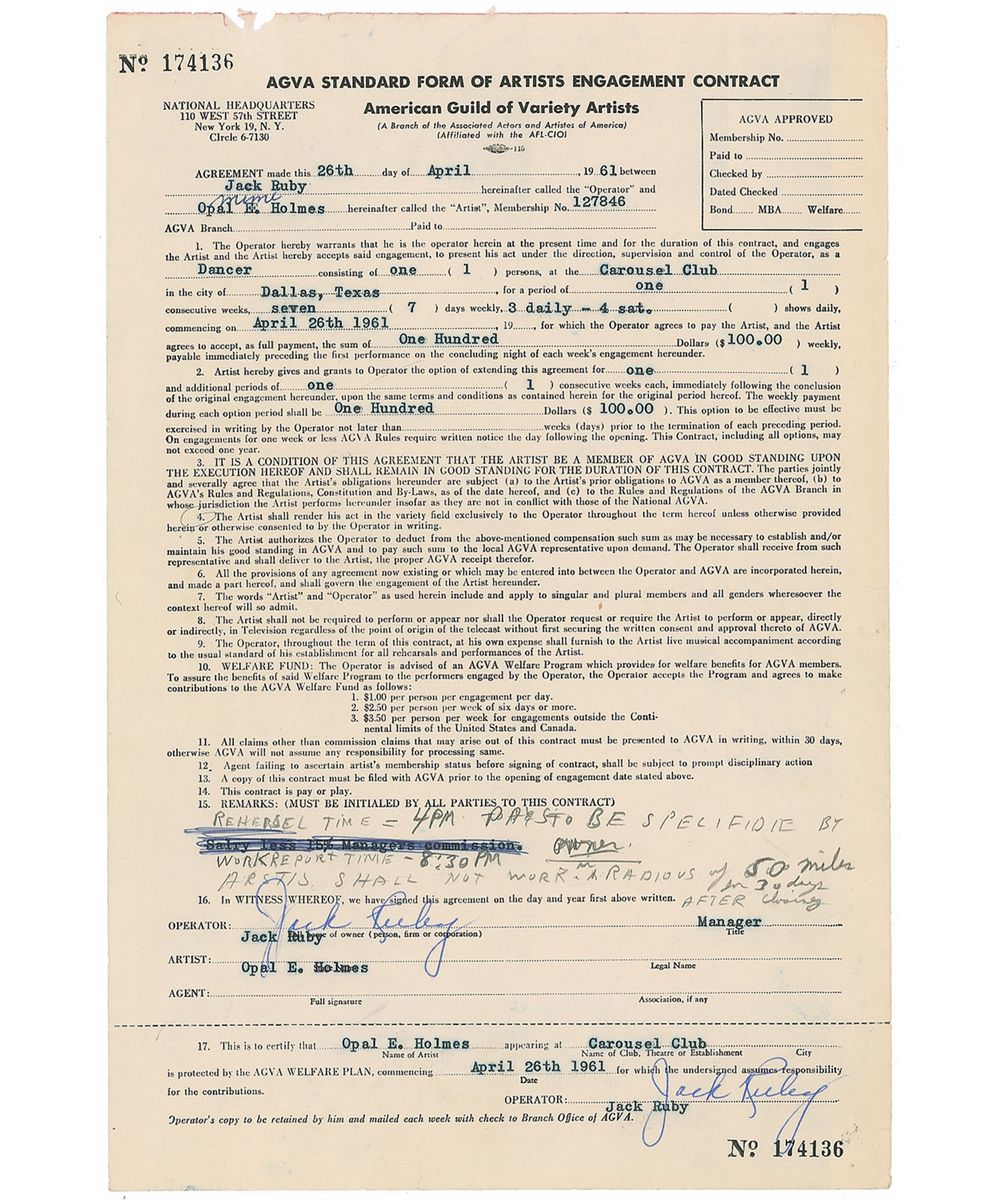 Nº 174136
AGVA STANDARD FORM OF ARTISTS ENGAGEMENT CONTRACT
NATIONAL HEADQUARTERS
110 WEST 57th STREET
New York 19, N. Y.
CIrcle 6-7130
American Guild of Variety Artists
(A Branch of the Associated Actors and Artistes of America)
(Affiliated with the AFL-CIO)
115
AGVA APPROVED
Membership No.
Paid to
Checked by
Dated Checked
Bond MBA Welfare
AGREEMENT made this 26th day of April, 19 61 between
Jack Ruby hereinafter called the "Operator" and
mimi
Opal E. Holmes hereinafter called the "Artist", Membership No. 127846
AGVA Branch Paid to
1. The Operator hereby warrants that he is the operator herein at the present time and for the duration of this contract, and engages
the Artist and the Artist hereby accepts said engagement, to present his act under the direction, supervision and control of the Operator, as a
Dancer consisting of one ( 1 ) persons, at the Carousel Club
in the city of Dallas, Texas, for a period of one ( 1 )
consecutive weeks, seven ( 7 ) days weekly, 3 daily - 4 sat. ( ) shows daily,
commencing on April 26th 1961, 19, for which the Operator agrees to pay the Artist, and the Artist
agrees to accept, as full payment, the sum of One Hundred Dollars ($100.00 ) weekly,
payable immediately preceding the first performance on the concluding night of each week's engagement hereunder.
2. Artist hereby gives and grants to Operator the option of extending this agreement for one ( 1 )
and additional periods of one ( 1 ) consecutive weeks each, immediately following the conclusion
of the original engagement hereunder, upon the same terms and conditions as contained herein for the original period hereof. The weekly payment
during each option period shall be One Hundred Dollars ($ 100.00 ). This option to be effective must be
exercised in writing by the Operator not later than weeks (days) prior to the termination of each preceding period.
On engagements for one week or less AGVA Rules require written notice the day following the opening. This Contract, including all options, may
not exceed one year.
3. IT IS A CONDITION OF THIS AGREEMENT THAT THE ARTIST BE A MEMBER OF AGVA IN GOOD STANDING UPON
THE EXECUTION HEREOF AND SHALL REMAIN IN GOOD STANDING FOR THE DURATION OF THIS CONTRACT. The parties jointly
and severally agree that the Artist's obligations hereunder are subject (a) to the Artist's prior obligations to AGVA as a member thereof, (b) to
AGVA's Rules and Regulations, Constitution and By-Laws, as of the date hereof, and (c) to the Rules and Regulations of the AGVA Branch in
whose jurisdiction the Artist performs hereunder insofar as they are not in conflict with those of the National AGVA.
4. The Artist shall render his act in the variety field exclusively to the Operator throughout the term hereof unless otherwise provided
herein or otherwise consented to by the Operator in writing.
5. The Artist authorizes the Operator to deduct from the above-mentioned compensation such sum as may be necessary to establish and/or
maintain his good standing in AGVA and to pay such sum to the local AGVA representative upon demand. The Operator shall receive from such
representative and shall deliver to the Artist, the proper AGVA receipt therefor.
6. All the provisions of any agreement now existing or which may be entered into between the Operator and AGVA are incorporated herein,
and made a part hereof, and shall govern the engagement of the Artist hereunder.
7. The words "Artist" and "Operator" as used herein include and apply to singular and plural members and all genders wheresoever the
context hereof will so admit.
8. The Artist shall not be required to perform or appear nor shall the Operator request or require the Artist to perform or appear, directly
or indirectly, in Television regardless of the point of origin of the telecast without first securing the written consent and approval thereto of AGVA.
9. The Operator, throughout the term of this contract, at his own expense shall furnish to the Artist live musical accompaniment according
to the usual standard of his establishment for all rehearsals and performances of the Artist.
10. WELFARE FUND: The Operator is advised of an AGVA Welfare Program which provides for welfare benefits for AGVA members.
To assure the benefits of said Welfare Program to the performers engaged by the Operator, the Operator accepts the Program and agrees to make
contributions to the AGVA Welfare Fund as follows:
1. $1.00 per person per engagement per day.
2. $2.50 per person per week of six days or more.
3. $3.50 per person per week for engagements outside the Conti-
nental limits of the United States and Canada.
11. All claims other than commission claims that may arise out of this contract must be presented to AGVA in writing, within 30 days,
otherwise AGVA will not assume any responsibility for processing same.
12. Agent failing to ascertain artist's membership status before signing of contract, shall be subject to prompt disciplinary action
13. A copy of this contract must be filed with AGVA prior to the opening of engagement date stated above.
14. This contract is pay or play.
15. REMARKS: (MUST BE INITIALED BY ALL PARTIES TO THIS CONTRACT)
REHERSEL TIME = 4PM DAYS TO BE SPECIFIDIE BY
Salry less 15% Managers commission. OWNER.
WORK REPORT TIME - 8:30 PM
ARSTIS SHALL NOT WORK IN A RADIOUS of 50 miles
for 30 days
AFTER closing
16. In WITNESS WHEREOF, we have signed this agreement on the day and year first above written.
Jack Ruby
OPERATOR: Manager
Jack Ruby of owner (person, firm or corporation) Title
ARTIST:
Opal E. Holmes Legal Name
AGENT:
Full signature Association, if any
17. This is to certify that Opal E. Holmes appearing at Carousel Club
Name of Artist Name of Club, Theatre or Establishment City
is protected by the AGVA WELFARE PLAN, commencing April 26th 1961 for which the undersigned assumes responsibility
Date
for the contributions.
Jack Ruby
OPERATOR:
Jack Ruby
Operator's copy to be retained by him and mailed each week with check to Branch Office of AGVA.
Nº 174136